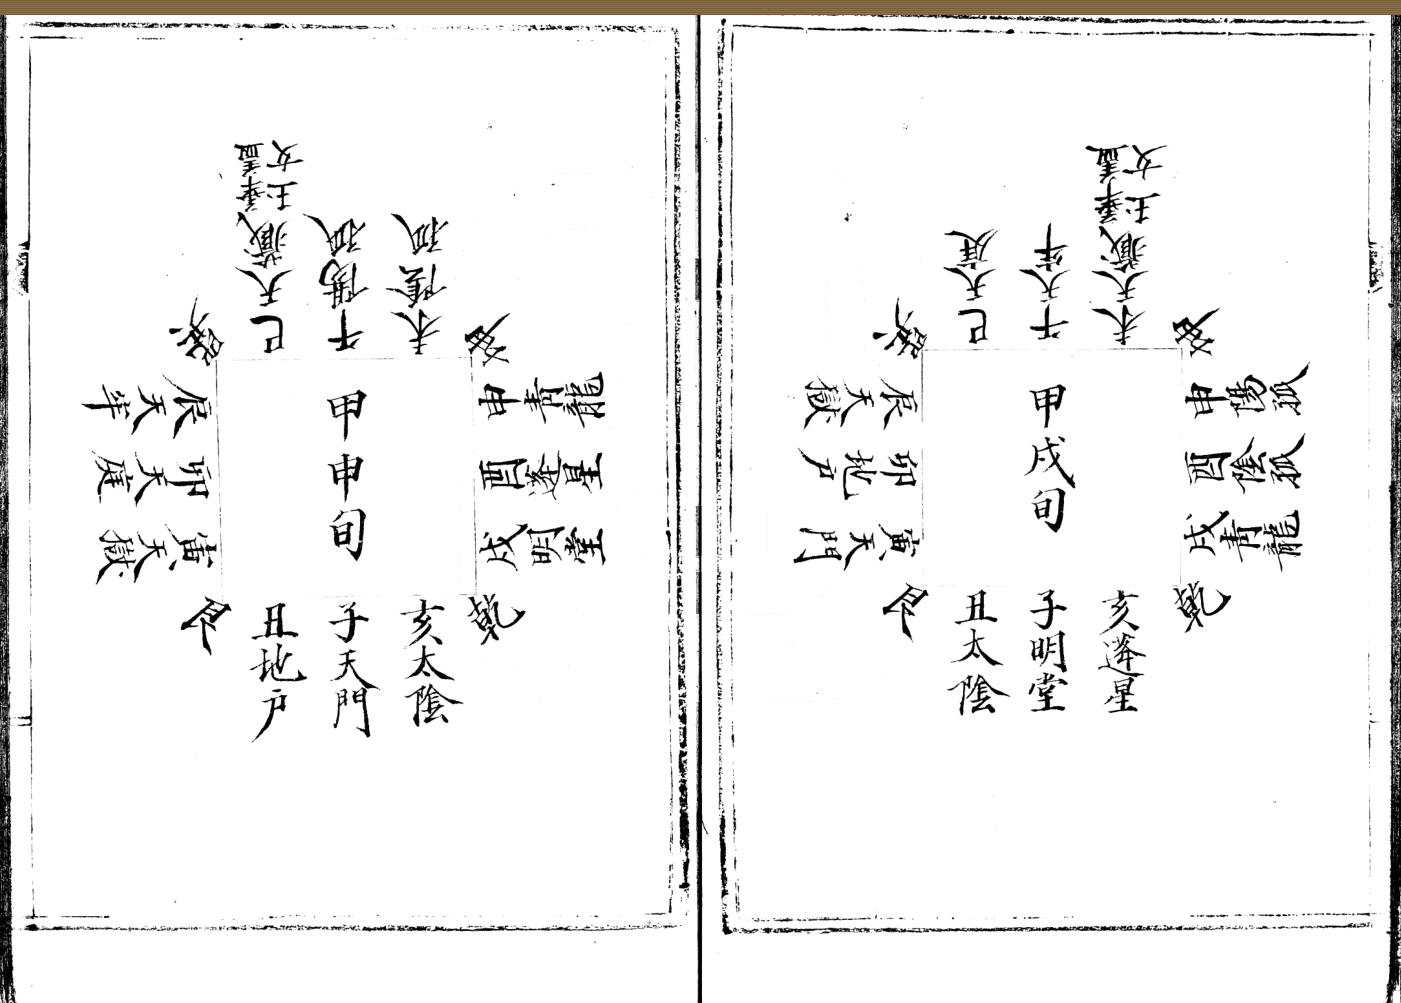 甲戌旬
巳天庭
午天牢
未天藏華蓋玉女
坤
申陽孤
酉陰孤
戌青龍
乾
亥蓬星
子明堂
丑太陰
艮
寅天門
卯地户
辰天獄
巽
甲申旬
巳天藏華蓋玉女
午陽孤
未陰孤
坤
申青龍
酉蓬星
戌明堂
乾
亥太陰
子天門
丑地户
艮
寅天獄
卯天庭
辰天牢
巽